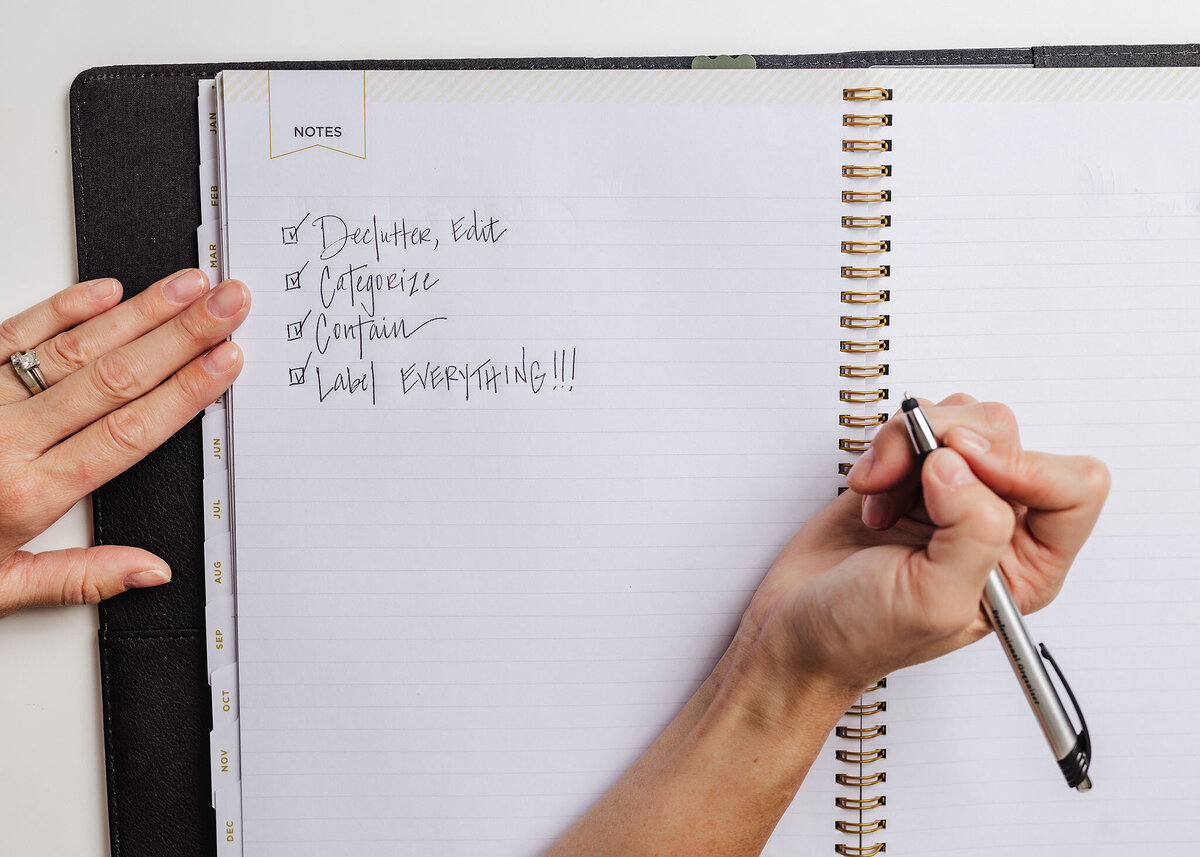 NOTES
JAN
FEB
MAR
JUN
JUL
AUG
SEP
OCT
NOV
DEC
Declutter, Edit
Categorize
Contain
Label EVERYTHING!!!
Professional Organizer